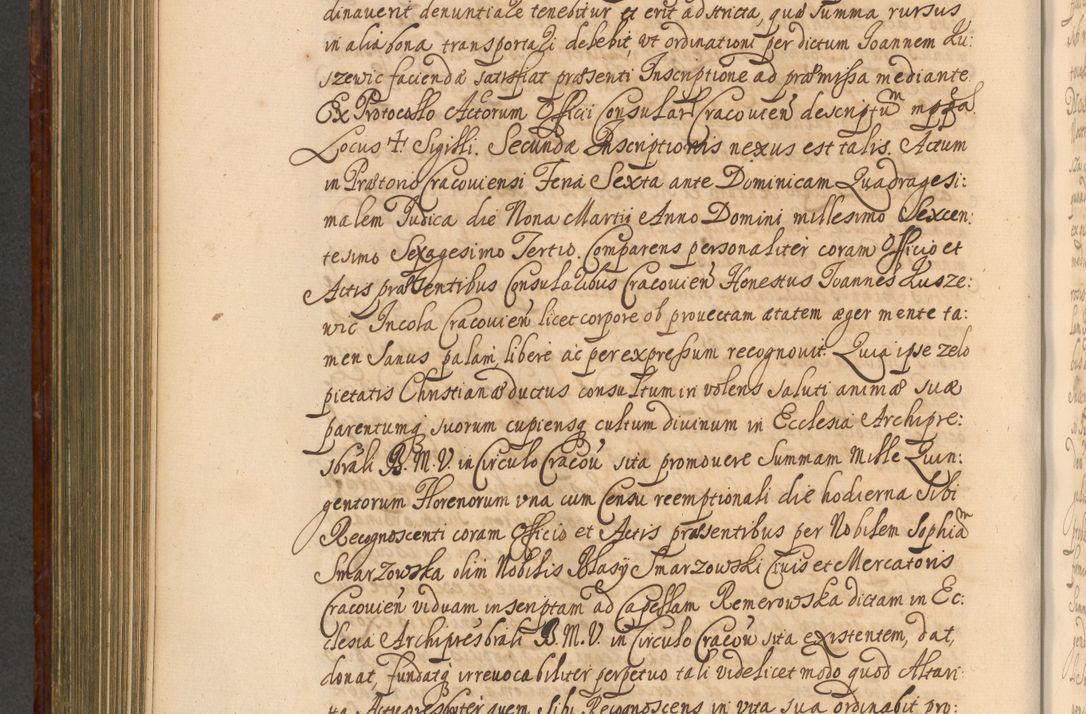 dinaverit denuntiare tenebitur et erit adstricta, quæ summa rursus
in alia bona transportari debebit, ut ordinationi per dictum Joannem Lu:
szewic faciendæ satisfiat præsenti Inscriptione ad præmissa mediante
Ex Protocollo Actorum Officii Consularis Cracovien̄ descriptum mppa
Locus ☩ Sigilli. Secundæ Inscriptionis nexus est talis. Actum
in Prætorio Cracoviensi Feria Sexta ante Dominicam Quadragesi:
malem Judica die Nona Martii Anno Domini millesimo Sexcen:
tesimo Sexagesimo Tertio. Comparens personaliter coram Officio et
Actis præsentibus Consularibus Cracovien̄ Honestus Joannes Lusze:
wic Incola Cracovien̄ licet corpore ob provectam ætatem æger mente ta:
men sanus palam, libere ac per expressum recognovit. Quia ipse zelo
pietatis Christianæ ductus consultum ire volens saluti animæ suæ
parentumq suorum cupiensq cultum divinum in Ecclesia Archipre:
sbrāli B. M. V. in Circulo Cracov̄ sita promovere Summam Mille Quin:
gentorum Florenorum una cum Censu reemptionali die hodierna Sibi
Recognoscenti coram Officio et Actis præsentibus per Nobilem Sophiam
Smarzowska olim Nobilis Blasij Smarzowski Civis et Mercatoris
Cracovien̄ viduam inscriptam ad Capellam Remerowska dictam in Ec:
clesia Archipresbrāli B. M. V. in Circulo Cracov̄ sita existentem, dat,
donat, fundatq irrevocabiliter perpetuo tali videlicet modo quod Altari:
sta Actu presbyter quem Sibi Recognoscens in vita sua ordinabit pro: